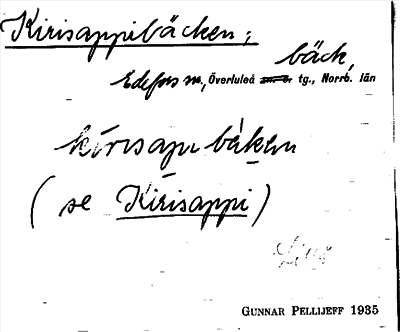 Kirisappibäcken;
bäck,
Edefors sn, Överluleå tg., Norrb. län
kirisapi bäken
(se Kirisappi)
GUNNAR PELLIJEFF 1935